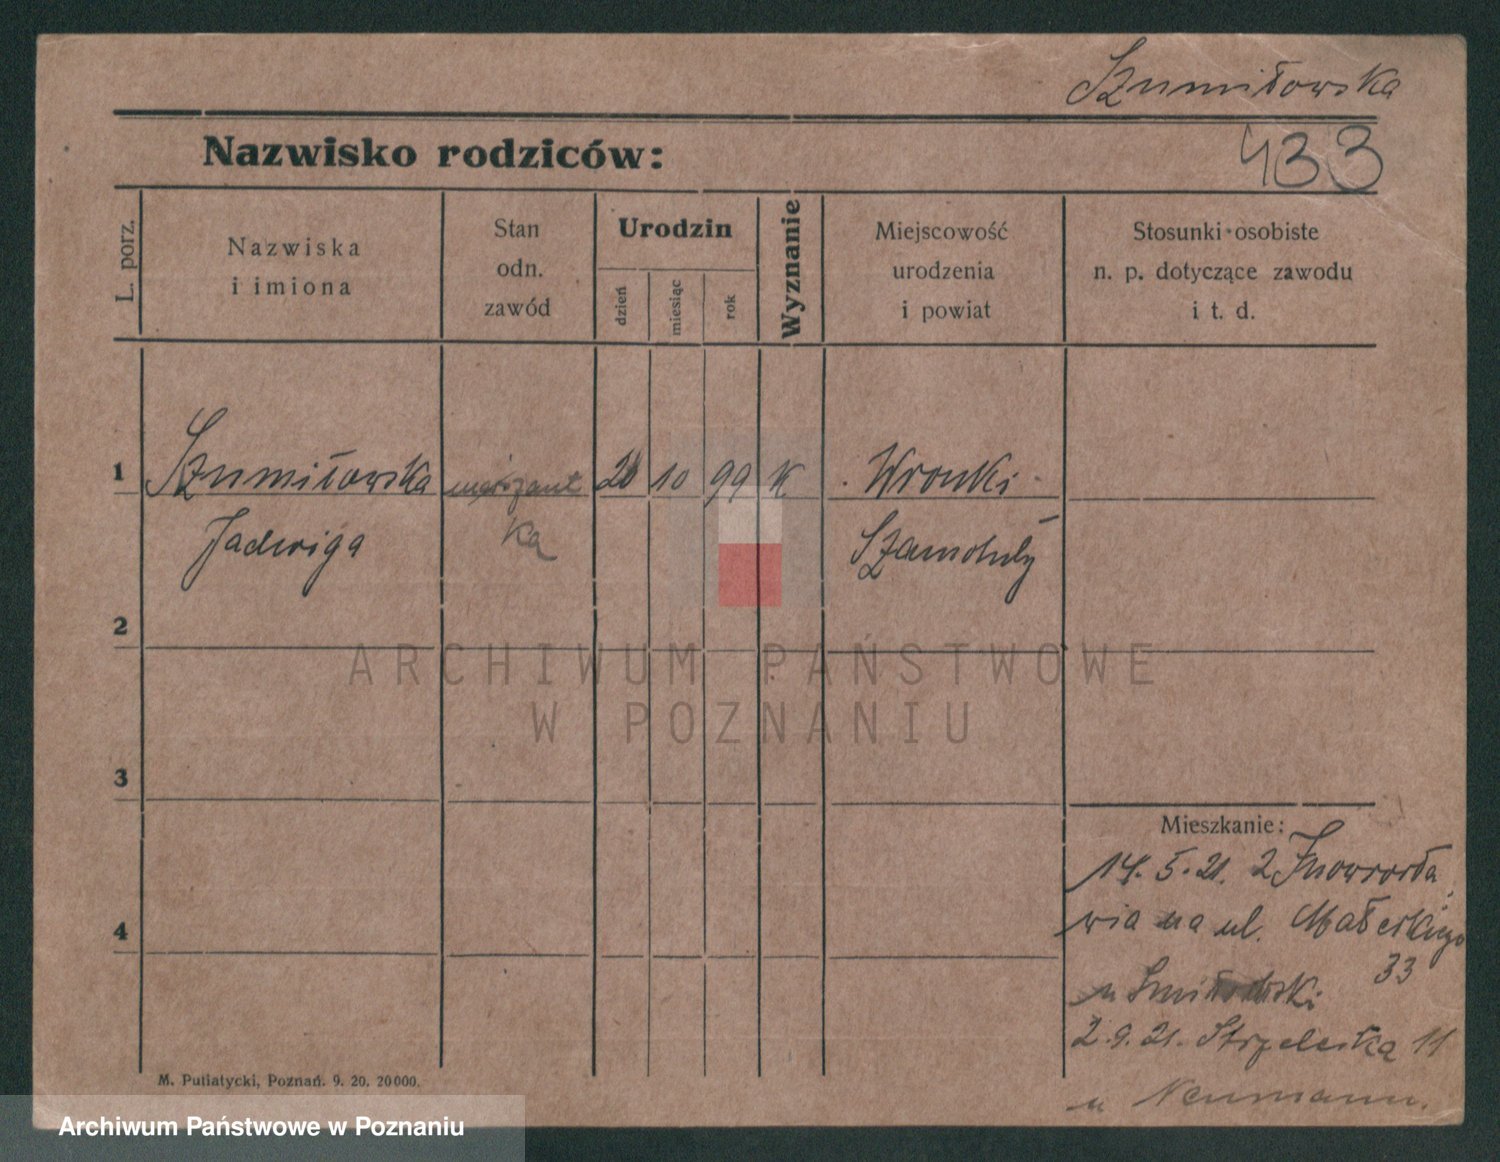 Szumiłowska
Nazwisko rodziców:
433
L. porz.
Nazwiska
i imiona
Stan
odn.
zawód
Urodzin
dzień
miesiąc
rok
Wyznanie
Miejscowość
urodzenia
i powiat
Stosunki osobiste
n. p. dotyczące zawodu
i t. d.
1
Szumiłowska 10 99 K Wronki
Jadwiga ka Szamotuły
2
ARCHIWUM PAŃSTWOWE
W POZNANIU
3
Mieszkanie:
14. 5. 21. z Inowrocła
wia na ul. Małeckiego
33
4
u
2. 9. 21. Strzelecka 11
u Neumann.
M. Putiatycki, Poznań. 9. 20. 20000.
Archiwum Państwowe w Poznaniu